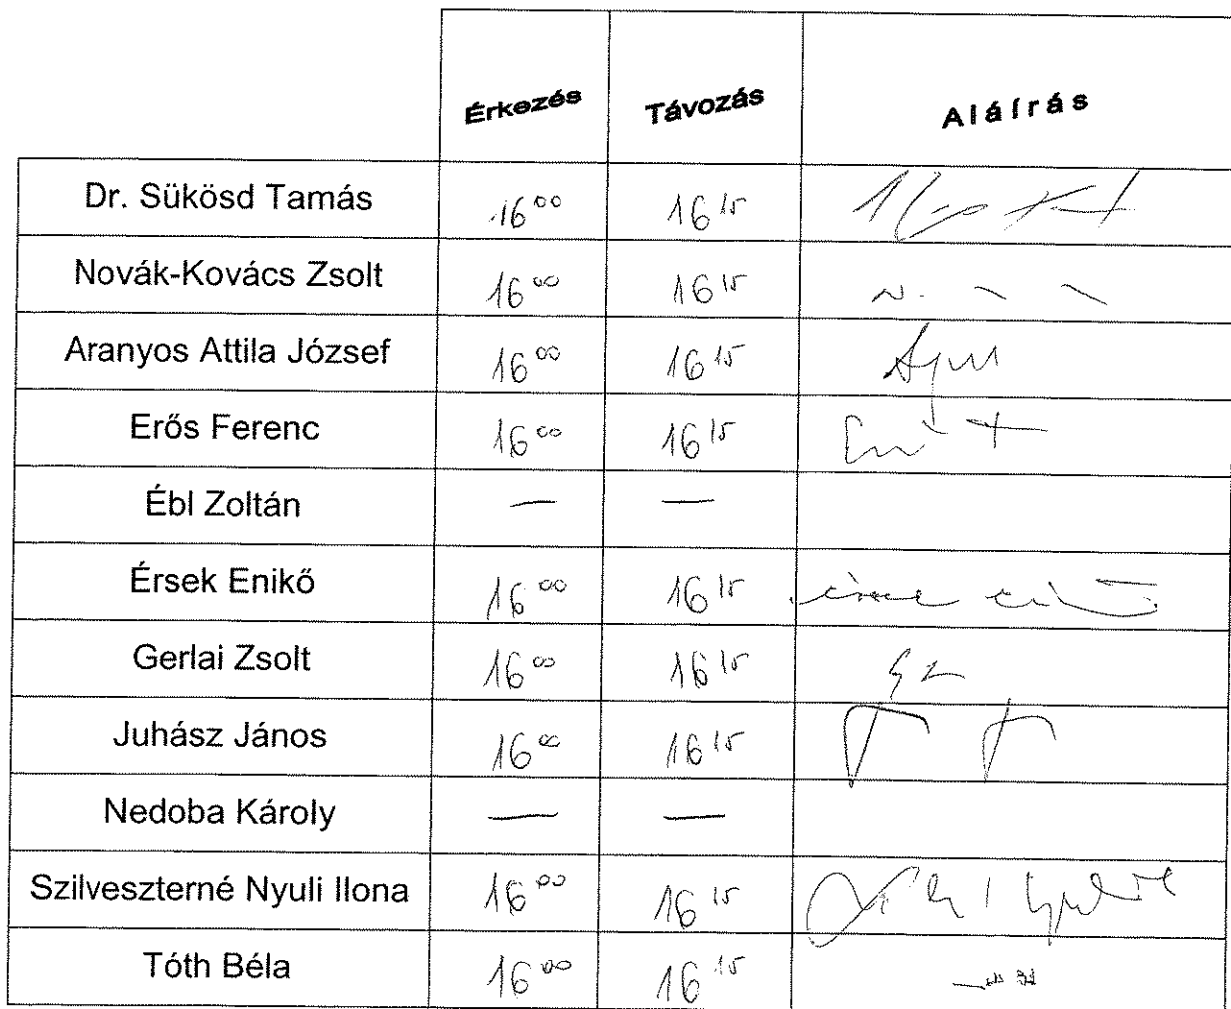 Érkezés Távozás Aláírás
Dr. Sükösd Tamás 16⁰⁰ 16¹⁵
Novák-Kovács Zsolt 16⁰⁰ 16¹⁵
Aranyos Attila József 16⁰⁰ 16¹⁵
Erős Ferenc 16⁰⁰ 16¹⁵
Ébl Zoltán — —
Érsek Enikő 16⁰⁰ 16¹⁵
Gerlai Zsolt 16⁰⁰ 16¹⁵
Juhász János 16⁰⁰ 16¹⁵
Nedoba Károly — —
Szilveszterné Nyuli Ilona 16⁰⁰ 16¹⁵
Tóth Béla 16⁰⁰ 16¹⁵